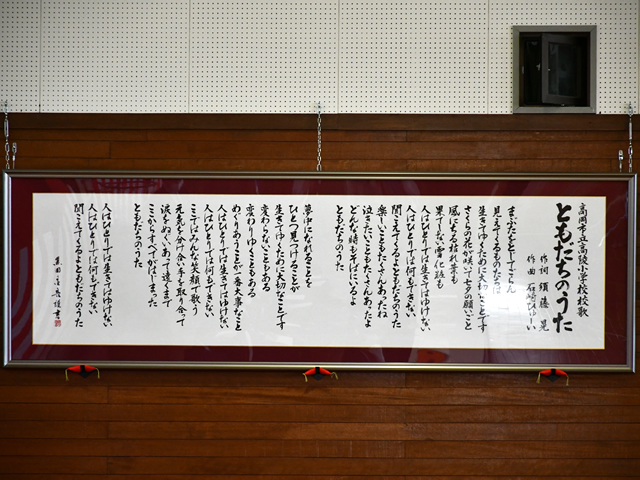 高岡市立高陵小学校校歌
ともだちのうた
作詞 須藤 晃
作曲 石崎ひゅーい
まぶたをとじてごらん
見えてくるものたちは
生きてゆくために大切です
さくらの花が咲いて七夕の願いごと
風にちる枯れ葉も
果てしない雪化粧も
人はひとりでは生きてはゆけない
人はひとりでは何もできない
聞こえてくるよともだちのうた
楽しいこともたくさんあったね
泣きたいこともたくさんあったよ
どんな時もそばにいるよ
ともだちのうた
夢中になれることを
ひとつ見つけることが
生きてゆくために大切なことです
変わらないこともある
変わりゆくこともある
めぐりあうことが一番大事なこと
人はひとりでは生きてはゆけない
人はひとりでは何もできない
ここではみんな笑顔で歌う
元気を分け合い手を取り合って
涙をぬぐいあって遠くまで
ここからすべてがはじまった
ともだちのうた
人はひとりでは生きてはゆけない
人はひとりでは何もできない
聞こえてくるよともだちのうた